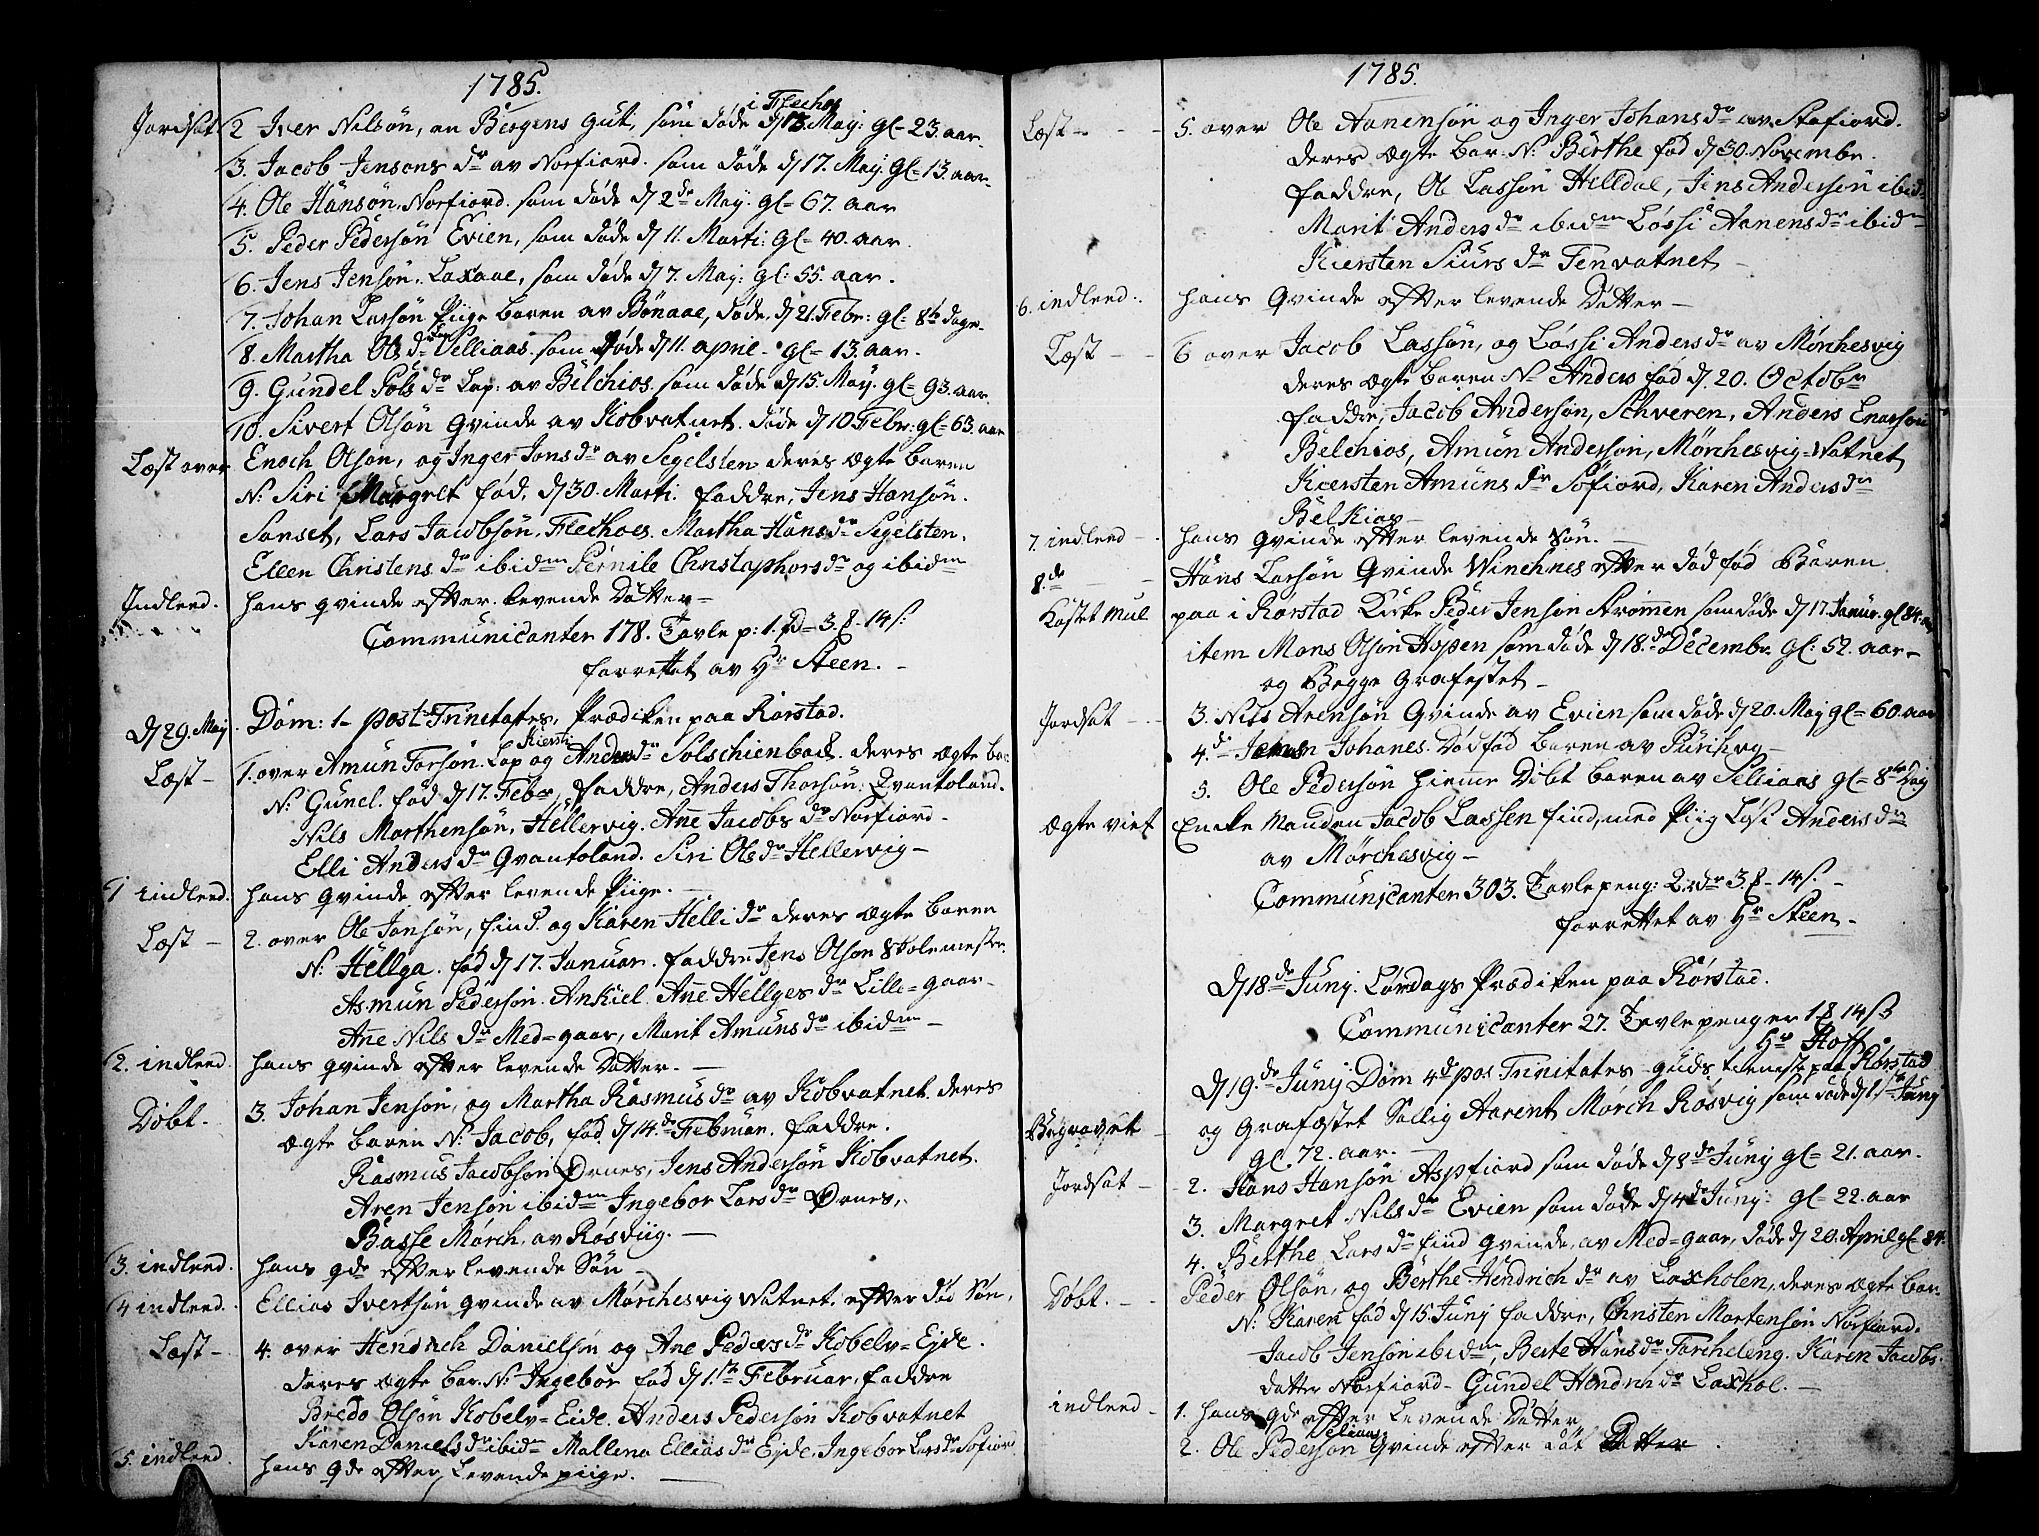 1785.
i Flechos
Jordsat 2 Iver Nilsøn, en Bergens gut, som døde d 13. May: gl= 23. aar.
3. Jacob Jensons dr av Norfiord. som døde d 17. May. gl= 13. aar.
4. Ole Hansøn. Norfiord. som døde d 2de May. gl= 67. aar
5. Peder Pedersøn Evien, som døde d 11. Marti: gl= 40. aar.
6. Jens Jensøn. Laxaae, som døde d 7. May. gl: 55. aar.
7. Johan Larsøn Piige baren av Bønaae, døde, d 21. Febr: gl= 8te dage.
8. Martha Ols dr Selliaas som døde d 11. april. gl= 13. aar.
9. Gundel Pols dr Lap: av Belchios. som døde d 15. May. gl= 93. aar.
10. Sivert Olsøn qvinde av Kobvatnet. døde d 10 Febr: gl= 63. aar
Læst over Enoch Olsøn, og Inger Jons dr av Segelsten deres ægte baren
N: Siri Margret fød, d 30. Marti. faddre, Jens Hansøn.
Sanset, Lars Jacobsøn, Flechoes. Martha Hans dr Segelsten.
Ellen Christens dr ibidm Pernile Christophors dr og ibidm
Indleed. hans qvinde efter levende Datter=
Communicanter 178. Tavle p: 1. rd= 3. 14 s:
forrettet av Hr Steen.
d 29. May Dom: 1- post Trinitates, Prædiken paa Rørstad.
Kiersti
Læst 1. over Amun Torsøn. Lap og Anders dr Solschienbad. deres ægte bar:
N: Gunel. fød d 17. Febr, faddre, Anders Thorsøn: Qvantoland.
Nils Morthensøn, Hellervig. Ane Jacobs dr Norfiord.
Elli Anders dr Qvantoland. Siri Ols dr Hellervig
1 indleed. hans qvinde efter levende Piige.
Læst 2. over Ole Jonsøn, find. og Karen Helli dr deres ægte baren
N: Hellga. fød d 17. Januar. faddre Jens Olsøn Skolemester.
Asmun Pedersøn. Ankiel. Ane Hellges dr Lille=gaar
Ane Nils dr Med=gaar, Marit Amuns dr ibidm
2. indleed hans qvinde efter levende Datter.
Døbt. 3. Johan Jensøn, og Martha Rasmus dr av Kobvatnet. deres
ægte baren N: Jacob, fød, d 14de Februar. faddre.
Rasmus Jacobsøn Ørnes, Jens Andersøn Kobvatnet.
Aren Jensøn ibidm Ingebor Lars dr Ørnes,
Basse Mørch, av Røsviig.
3. indleed. hans qde efter levende Søn
4 indleed. Ellias Ivertsøn qvinde av Mørchesvig Watnet. efter død Søn.
Læst 4. over Hendrich Danielsøn og Ane Peders dr Kobelv=Ejde.
deres ægte bar. N: Ingebor fød d 1.ste Februar. faddre
Bredo Olsøn Kobelv=Eide. Anders Pedersøn Kobvatnet
Karen Daniels dr ibidm Mallena Ellias dr Ejde, Ingebor Lars dr Sofiord
5. indleed. hans qde efter Levende piige.
1785.
Læst 5. over Ole Aanensøn og Inger Johans dr av Stofiord.
deres ægte bar: N: Berthe fød d 30. Novembr.
faddre, Ole Lassøn Helldal, Jens Andersøn ibid.
Marit Anders dr ibidm Løssi Aanens dr ibidm
Kiersten Siurs dr Tenvatnet
6. indleed. hans qvinde efter levende Datter
Læst 6 over Jacob Lassøn, og Løssi Anders dr av Mørchesvig
deres ægte baren N: Anders fød d. 20. Octobr
faddre, Jacob Andersøn, Schveren, Anders Enarsøn
Belchios, Amun Andersøn, Mørchesvig=Watnet
Kiersten Amuns dr Søfiord, Karen Anders dr
Belkios
7. indleed hans qvinde efter levende Søn.
8.de Hans Larsøn Qvinde Winchnes efter død fød Baren.
Kastet Mul paa i Rørstad Kirke Peder Jensøn Strømmen som døde d 17. Januar. gl 84.
item Mons Olsøn Aspen som døde d 18.de Decembr. gl: 52. aar
og Begge Grafestet
Jordsat 3. Nils Arensøn Qvinde av Evien som døde d 20. May gl= 60. aar
4de Johanes. Død fød baren av Purikvg
5. Ole Pedersøn hieme Døbt baren av Selliaas gl= 8te Dag
Ægte viet Encke Manden Jacob Lassen find, med Piig Løsi Anders dr
av Mørchesvig
Communicanter 303. Tavlepeng: 2 rdr 3. 14 s.
forrettet av Hr Steen
d 18de Junj. Lørdags Prædiken paa Rørstad.
Communicanter 27. Tavlepenger 1 14 s
Hr Hoff.
d 19.de Junij Dom 4de pos. Trinitates guds tieneste paa Rørstad
Begravet og Grafæstet Sallig Aarent Mørch Røsvig som døde d 1ste Junij
gl. 72. aar.
Jordsat 2. Hans Hansøn Aspfiord som døde d 8de Junij gl= 21. aar.
3. Margret Nils dr Evien som døde d 4de Junij: gl= 22. aar
4. Berthe Lars dr find qvinde, av Med=gaar, døde d 20. April gl 84.
Døbt. Peder Olsøn, og Berthe Hendrich dr av Laxholen, deres ægte bar
N: Karen fød d 15. Junj faddre, Christen Mortensøn Norfiord.
Jacob Jensøn ibidm, Berte Hans dr Tørcheleng. Karen Jacobs
datter Norfiord. Gundel Hendrich dr Laxhol.
indleed 1. hans qde efter Levende Datter
Seliaas
2. Ole Pedersøn Qvinde efter død Datter